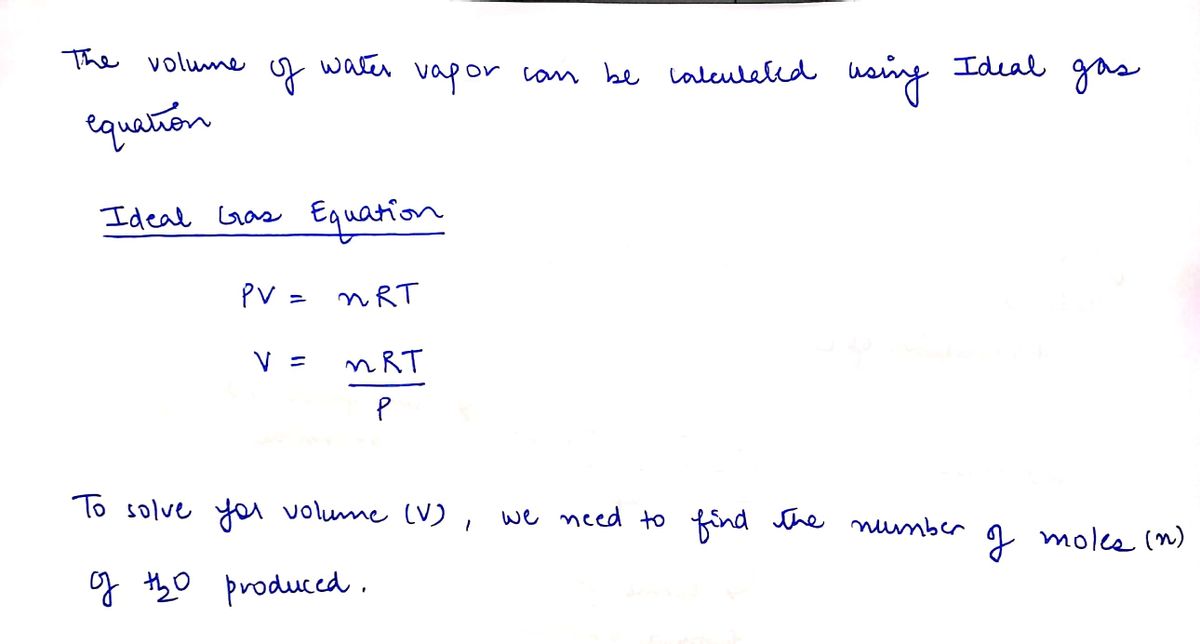 The volume of water vapor can be calculated using Ideal gas
equation
Ideal Gas Equation
PV = nRT
V = nRT
P
To solve for volume (V), we need to find the number of moles (n)
of H2O produced.